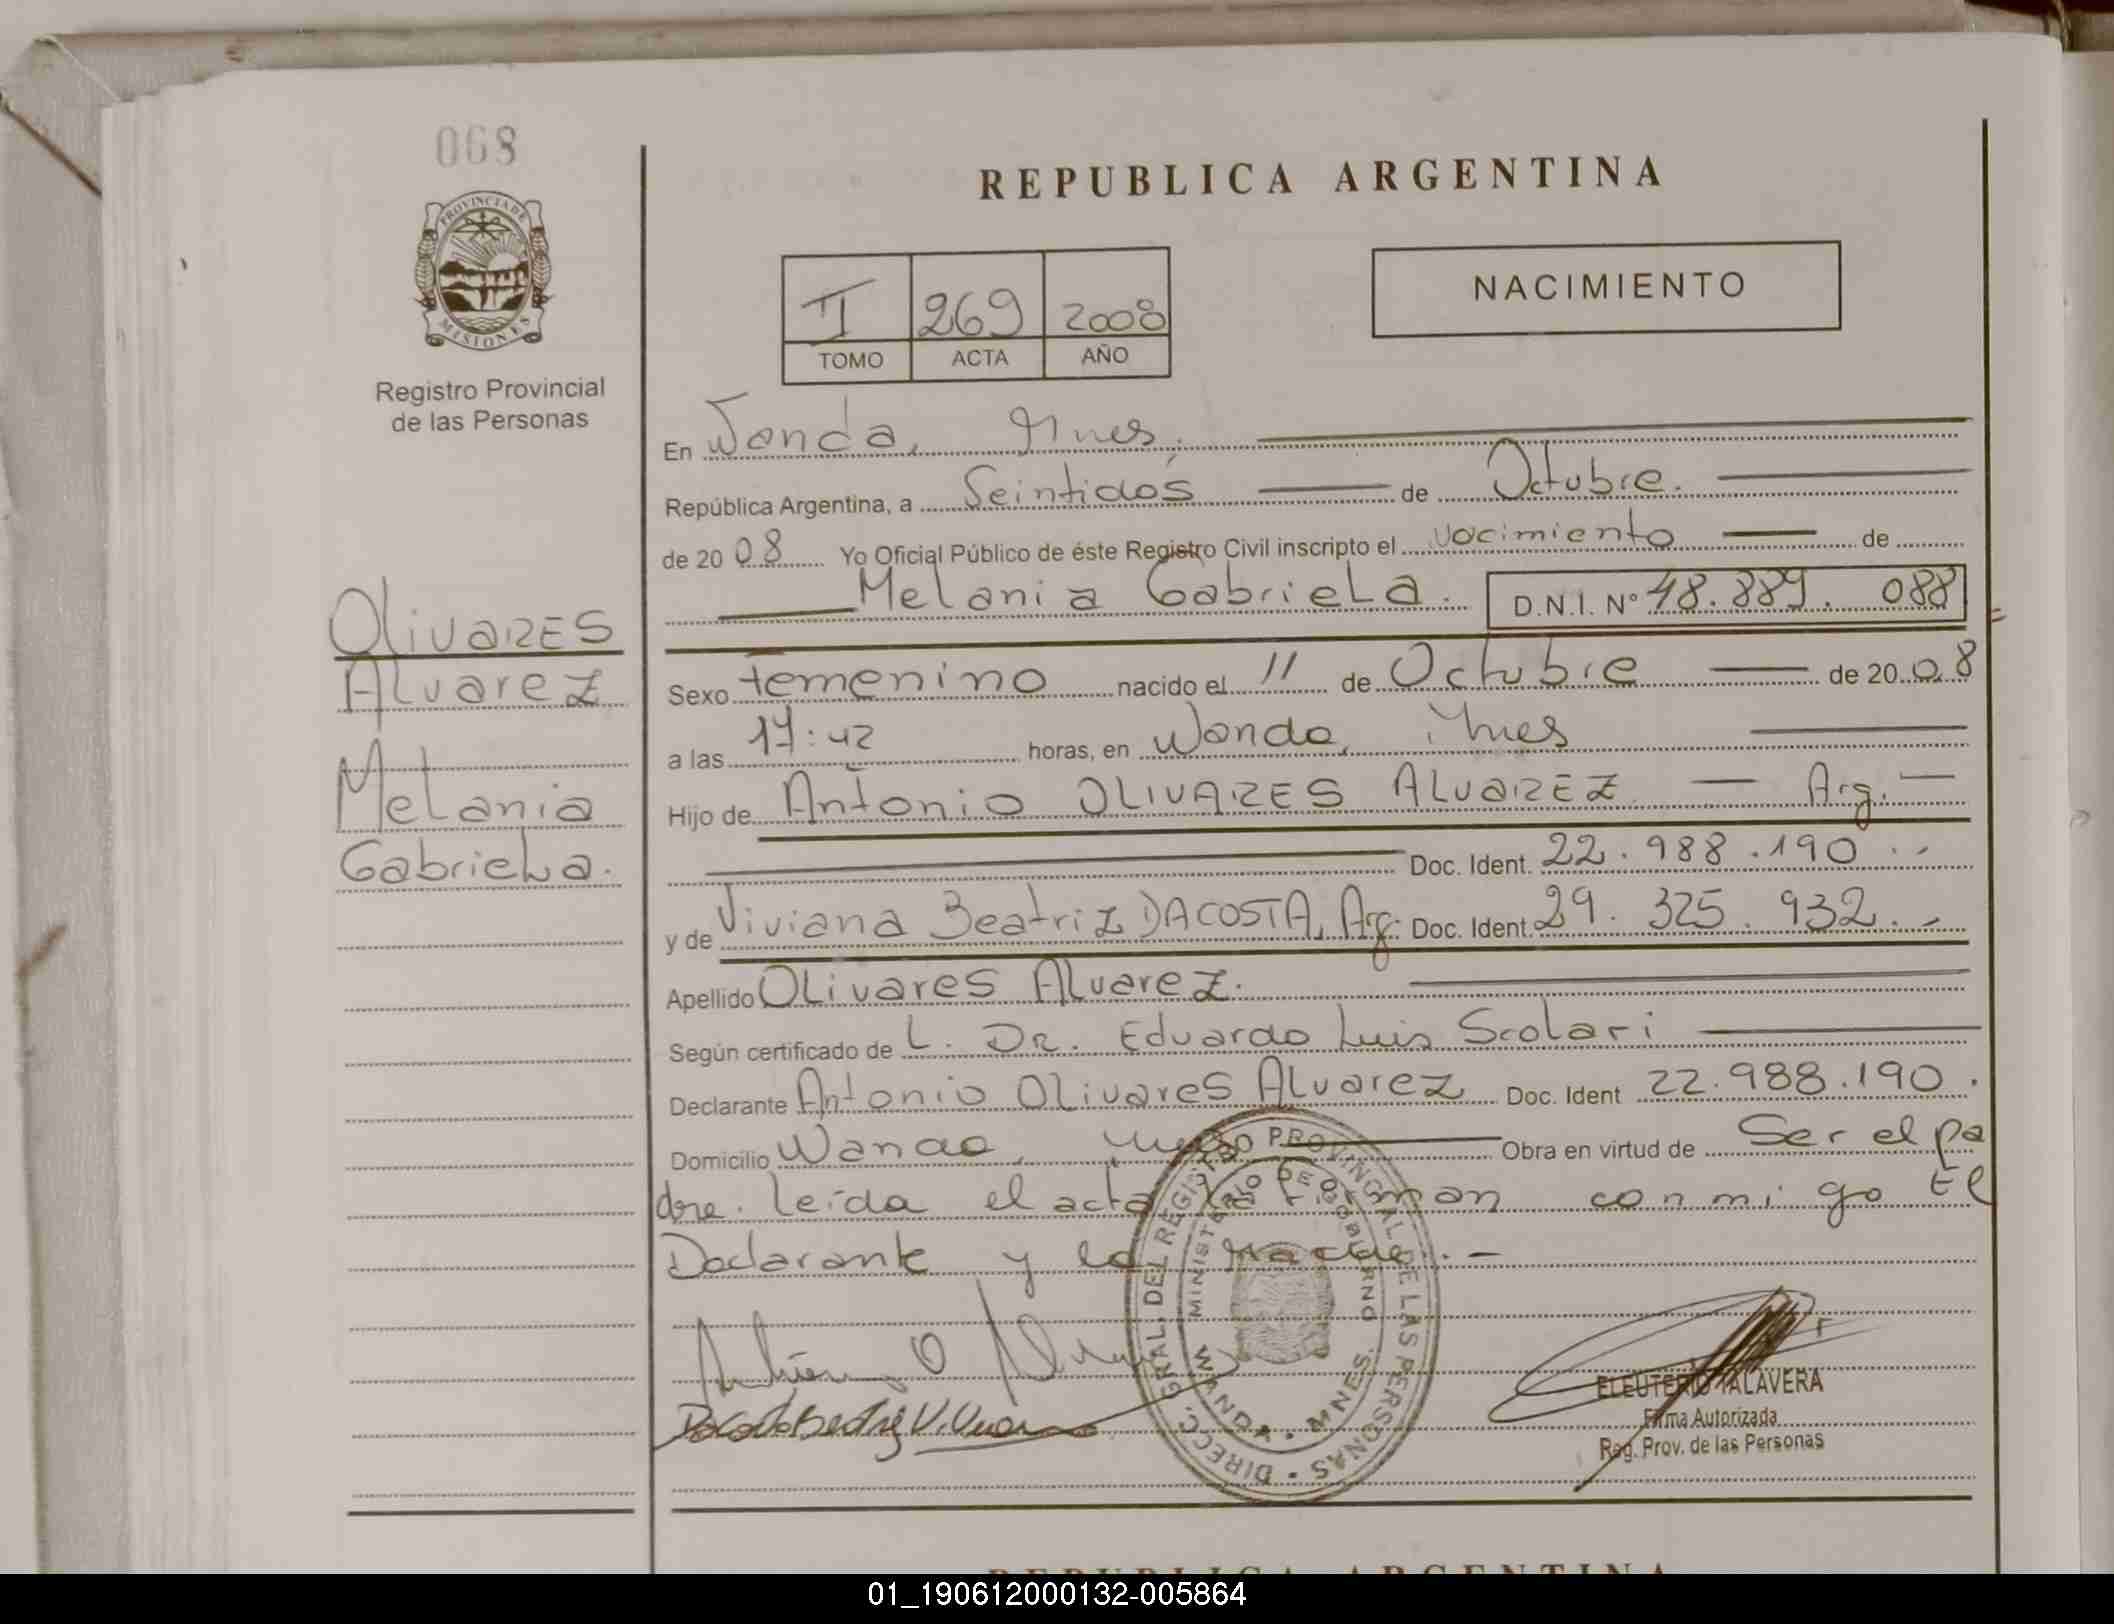 068
PROVINCIA DE
MISIONES
Registro Provincial
de las Personas
OLIVARES
Alvarez
Melania
Gabriela.
REPUBLICA ARGENTINA
II 269 2008
TOMO ACTA AÑO
NACIMIENTO
En Wanda, Mnes.
República Argentina, a Veintidós de Octubre.
de 2008 Yo Oficial Público de éste Registro Civil inscripto el nacimiento de
Melania Gabriela. D.N.I. Nº 48.889.088
Sexo femenino nacido el 11 de Octubre de 2008
a las 17:42 horas, en Wanda, Mnes
Hijo de Antonio OLIVARES ALVAREZ - Arg. -
Doc. Ident. 22.988.190.-
y de Viviana Beatriz DACOSTA, Arg. Doc. Ident. 29.325.932.-
Apellido Olivares Alvarez.
Según certificado de L. DR. Eduardo Luis Scolari
Declarante Antonio Olivares Alvarez Doc. Ident 22.988.190.
Domicilio Wanda, Mnes Obra en virtud de Ser el pa
dre. Leída el acta la firman conmigo El
Declarante y la madre.-
DIRECC. GRAL. DEL REGISTRO PROVINCIAL DE LAS PERSONAS
MINISTERIO DE GOBIERNO
WANDA - MNES.
ELEUTERIO TALAVERA
Firma Autorizada
Reg. Prov. de las Personas
REPUBLICA ARGENTINA
01_190612000132-005864